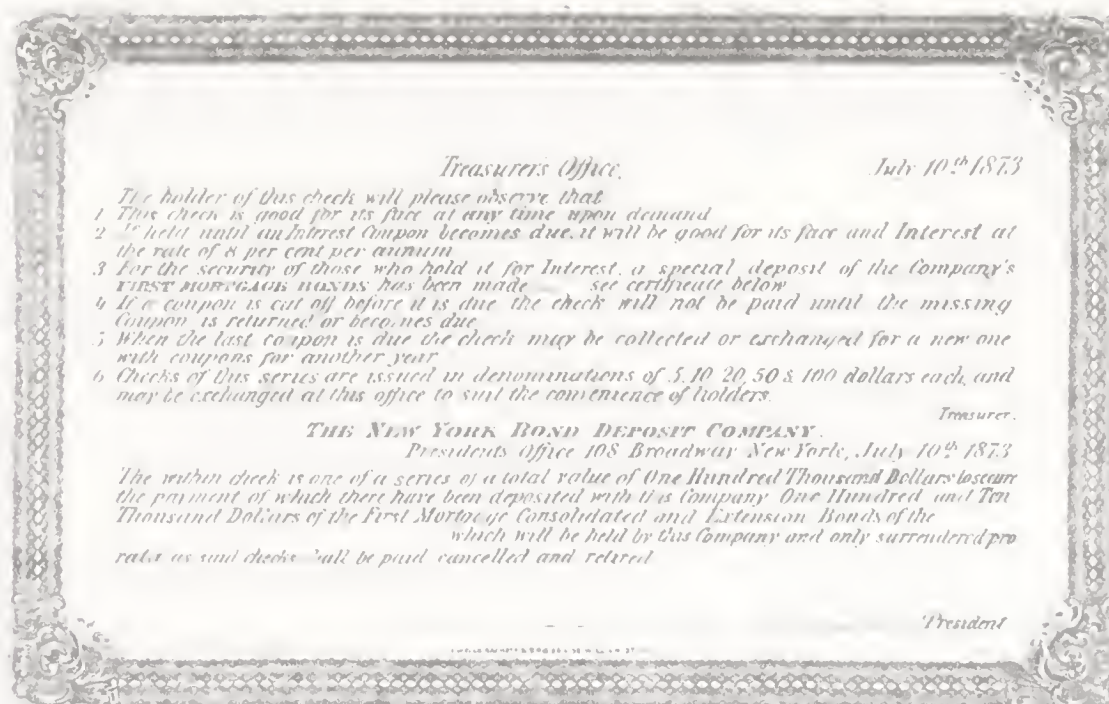 Treasurer's Office, July 10th 1873
The holder of this check will please observe that
1 This check is good for its face at any time upon demand
2 If held until an Interest Coupon becomes due, it will be good for its face and Interest at
the rate of 8 per cent per annum
3 For the security of those who hold it for Interest, a special deposit of the Company's
FIRST MORTGAGE BONDS has been made see certificate below
4 If a coupon is cut off before it is due the check will not be paid until the missing
Coupon is returned or becomes due
5 When the last coupon is due the check may be collected or exchanged for a new one
with coupons for another year
6 Checks of this series are issued in denominations of 5, 10, 20, 50 & 100 dollars each, and
may be exchanged at this office to suit the convenience of holders.
Treasurer.
THE NEW YORK BOND DEPOSIT COMPANY.
Presidents Office 108 Broadway New York, July 10th 1873
The within check is one of a series of a total value of One Hundred Thousand Dollars to secure
the payment of which there have been deposited with this Company One Hundred and Ten
Thousand Dollars of the First Mortgage Consolidated and Extension Bonds of the
which will be held by this Company and only surrendered pro
rata as said checks shall be paid cancelled and retired
President